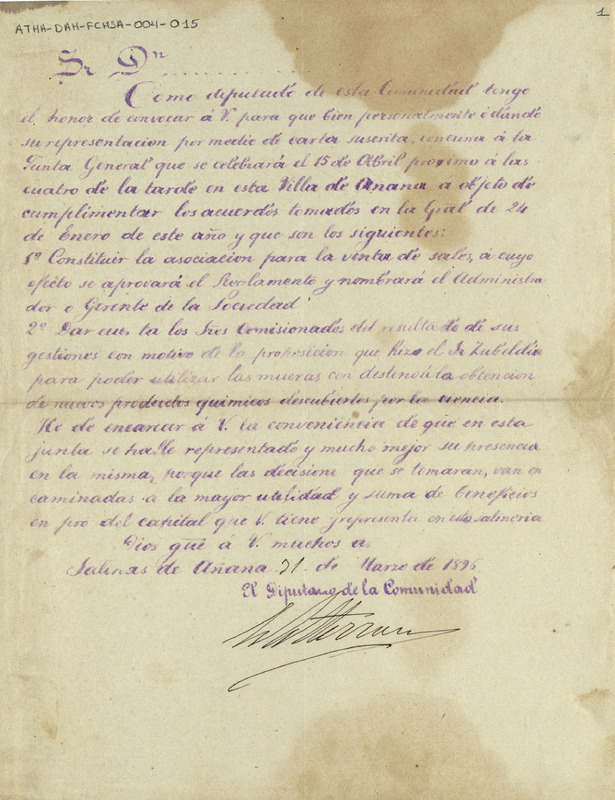 1
ATHA-DAH-FCHSA-004-015
Sr Dn
Como diputado de esta Comunidad tengo
el honor de convocar á V. para que bien personalmente ó dando
su representacion por medio de carta suscrita, concurra á la
Junta General que se celebrará el 15 de Abril proximo á las
cuatro de la tarde en esta Villa de Añana, á objeto de
cumplimentar los acuerdos tomados en la Gral de 24
de Enero de este año y que son los siguientes:
1º Constituir la asociacion para la venta de sales, á cuyo
efecto se aprovará el Reglamento y nombrará el Administra
dor o Gerente de la Sociedad
2º Dar cuenta los Sres Comisionados del resultado de sus
gestiones con motivo de la proposicion que hizo el Sr Zubeldia
para poder utilizar las mueras con destino á la obtencion
de nuevos productos quimicos descubiertos por la ciencia.
He de encarecer á V. la conveniencia de que en esta
junta se halle representado y mucho mejor su presencia
en la misma, porque las decisione que se tomaran, van en
caminadas á la mayor utilidad y suma de beneficios
en pró del capital que V. tiene y representa en esta salineria
Dios gue á V. muchos a.
Salinas de Añana 21 de Marzo de 1896
El Diputado de la Comunidad